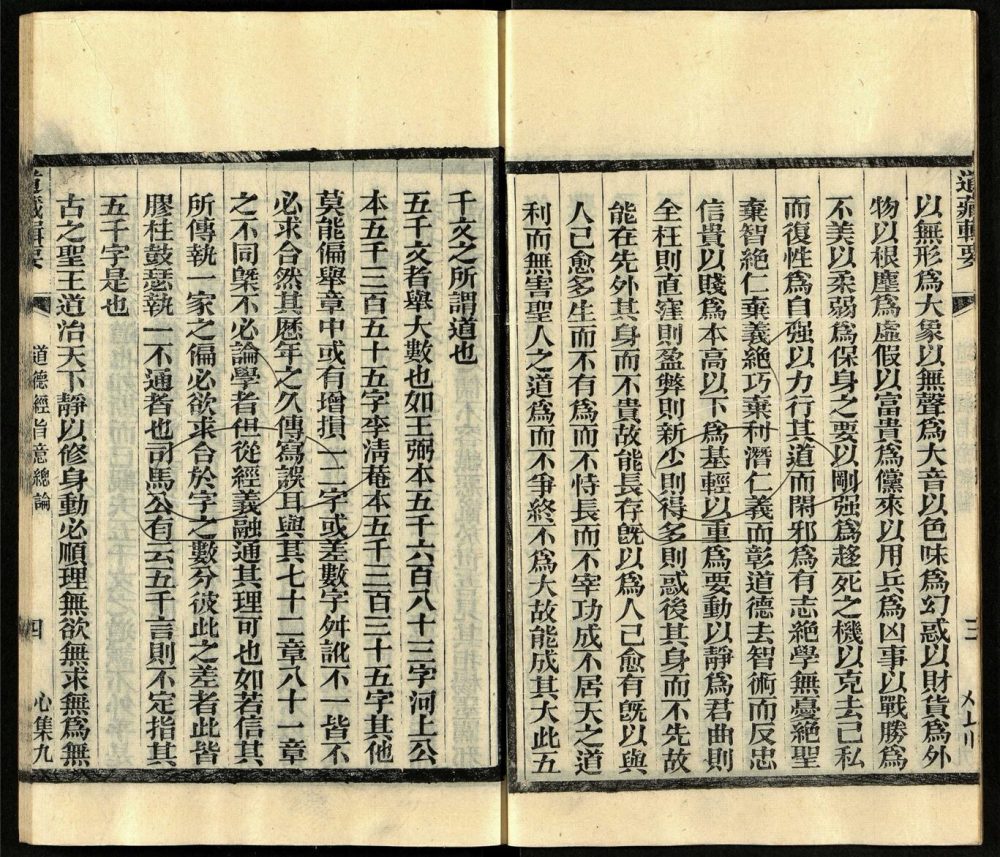 道藏輯要
三
以無形爲大象以無聲爲大音以色味爲幻惑以財貨爲外
物以根塵爲虛假以富貴爲儻來以用兵爲凶事以戰勝爲
不美以柔弱爲保身之要以剛强爲趍死之機以克去己私
而復性爲自强以力行其道而閑邪爲有志絕學無憂絕聖
棄智絕仁棄義絕巧棄利潛仁義而彰道德去智術而反忠
信貴以賤爲本高以下爲基輕以重爲要動以靜爲君曲則
全枉則直窪則盈弊則新少則得多則惑後其身而不先故
能在先外其身而不貴故能長存旣以爲人己愈有旣以與
人己愈多生而不有爲而不恃長而不宰功成不居天之道
利而無害聖人之道爲而不爭終不爲大故能成其大此五
千文之所謂道也
五千文者舉大數也如王弼本五千六百八十三字河上公
本五千三百五十五字李淸菴本五千三百三十五字其他
莫能偏舉章中或有增損一二字或差數字舛訛不一皆不
必求合然其歷年之久傳寫誤耳與其七十二章八十一章
之不同槩不必論學者但從經義融通其理可也如若信其
所傳執一家之偏必欲求合於字之數分彼此之差者此皆
膠柱鼓瑟執一不通者也司馬公有云五千言則不定指其
五千字是也
古之聖王道治天下靜以修身動必順理無欲無求無爲無
道藏輯要
道德經旨意總論
四
心集九